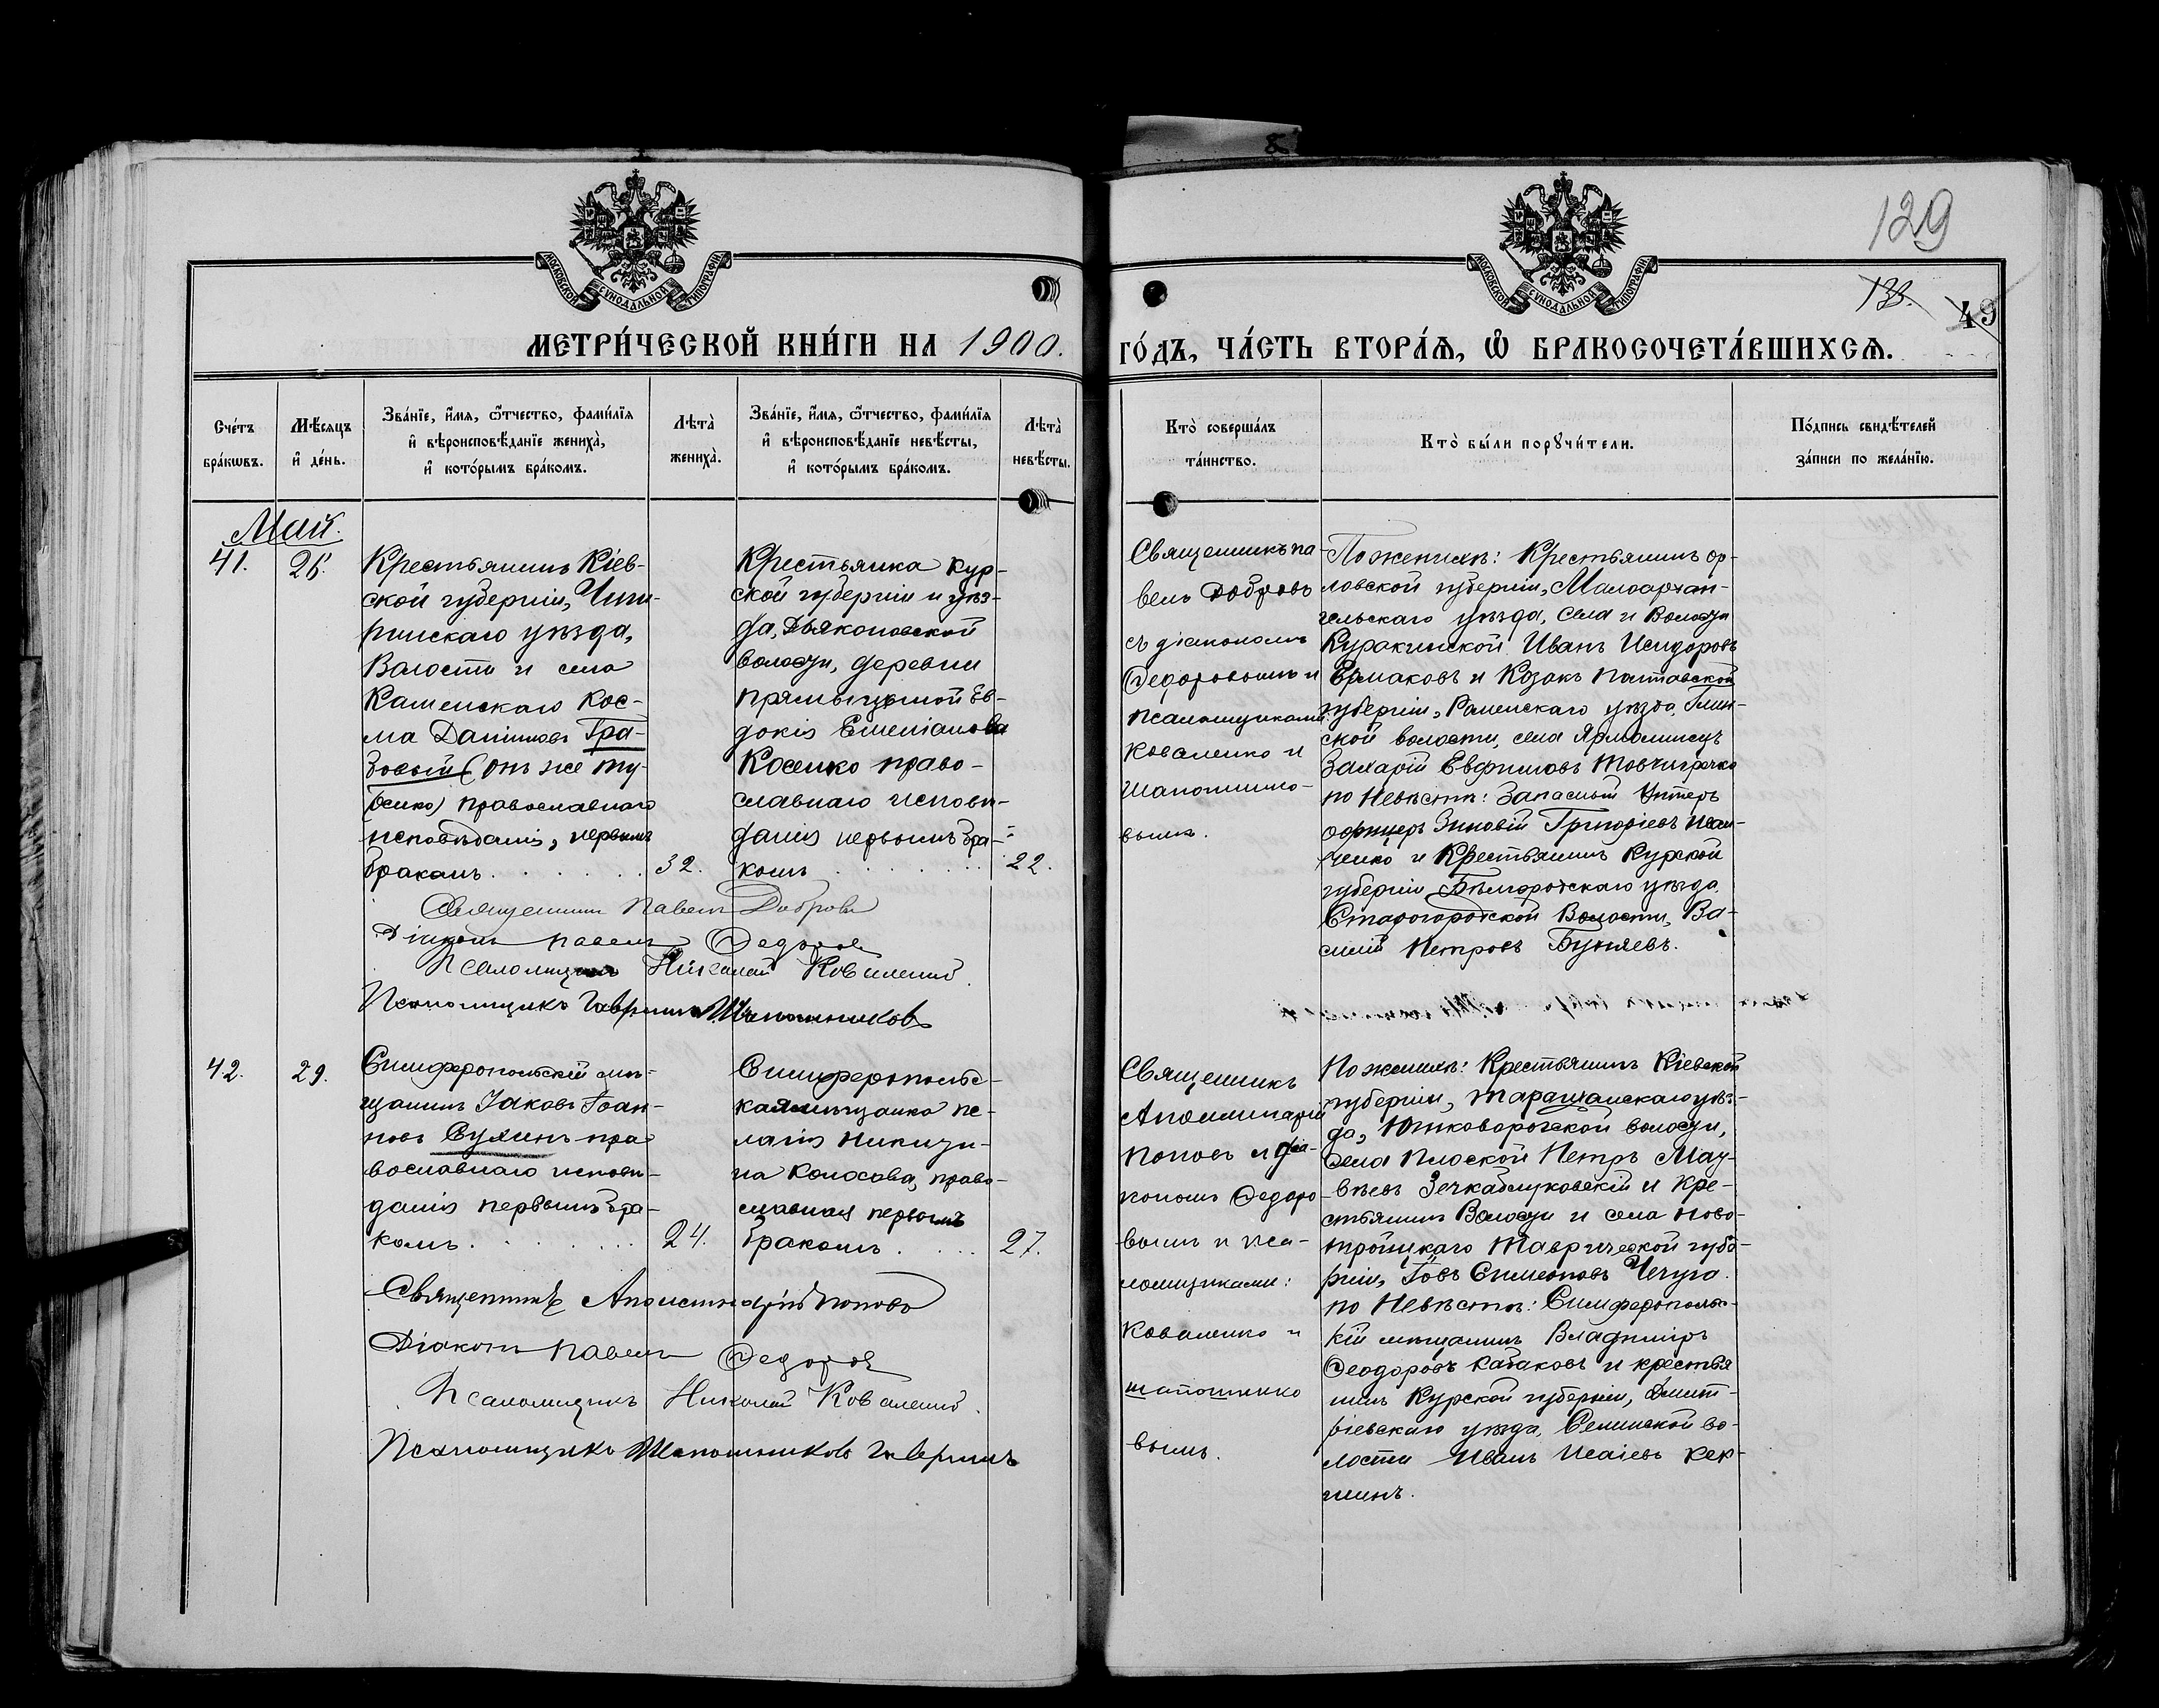 129
138.
49
МОСКОВСКОЙ СѴНОДАЛЬНОЙ ТИПОГРАФІИ
МОСКОВСКОЙ СѴНОДАЛЬНОЙ ТИПОГРАФІИ
МЕТРИ́ЧЕСКОЙ КНИ́ГИ НА 1900.
ГО́ДЪ, ЧА́СТЬ ВТОРА́Я, Ѽ БРАКОСОЧЕТА́ВШИХСЯ.
Сче́тъ
бра́кѡвъ.
Мѣ́сяцъ
и҆ де́нь.
Зва́нїе, и҆́мя, ѻ҆́тчество, фами́лїя
и҆ вѣроисповѣ́данїе жениха̀,
и҆ кото́рымъ бра́комъ.
Лѣта̀
жениха̀.
Зва́нїе, и҆́мя, ѻ҆́тчество, фами́лїя
и҆ вѣроисповѣ́данїе невѣ́сты,
и҆ кото́рымъ бра́комъ.
Лѣта̀
невѣ́сты.
Кто̀ соверша́лъ
та́инство.
Кто̀ бы́ли порꙋчи́тели.
По́дпись свидѣ́телей
за́писи по жела́нїю.
Май.
41.
Крестьянинъ Кіев-
ской губерніи, Чиги-
ринскаго уѣзда,
Волости и села
Каменскаго Кос-
ма Даніиловъ Гра-
зовый (онъ же Ту-
православнаго
исповѣданія, первымъ
бракомъ.
32.
Крестьянка Кур-
ской губерніи и уѣз-
да, Дьяконовской
волости, деревни
Ев-
докія Емеліанова
Косенко право-
славнаго исповѣ-
данія первымъ бра-
комъ
22.
Священникъ Па-
велъ Добровъ
съ діакономъ
Федоровымъ и
псаломщиками:
Коваленко и
Шапошнико-
вымъ.
По женихѣ: Крестьянинъ Ор-
ловской губерніи, Малоархан-
гельскаго уѣзда, села и Волости
Куракинской Иванъ Исидоровъ
Ермаковъ и Козакъ Полтавской
губерніи, Роменскаго уѣзда, Глин-
ской волости, села Ярмолинецъ
Захарій Евфимовъ Товчигречко
по Невѣстѣ: Запасный Унтеръ
офицеръ Зиновій Григоріевъ Иван-
ченко и Крестьянинъ Курской
губерніи Бѣлгородскаго уѣзда
Старогородской Волости, Ва-
силій Петровъ Буняевъ.
Священникъ Павелъ Добровъ
Діаконъ Павелъ Федоровъ
Псаломщикъ Николай Коваленко.
Псаломщикъ Гавріилъ Шапошниковъ
42.
29.
Симферопольскій мѣ-
щанинъ Іаковъ Іоан-
новъ Сухинъ пра-
вославнаго исповѣ-
данія первымъ бра-
комъ.
24.
Симферопольс-
кая мѣщанка Пе-
лагія Никити-
на Колосова, право-
славная первымъ
бракомъ.
27.
Священникъ
Аполлинарій
Поповъ и діа-
кономъ Федоро-
вымъ и пса-
ломщиками:
Коваленко и
Шапошнико
вымъ.
По женихѣ: Крестьянинъ Кіевской
губерніи, Таращанскаго уѣз-
да, волости,
села Плоской Петръ Мат-
вѣевъ и Кре-
стьянинъ Волости и села Ново-
троицкаго Таврической губе-
рніи, Іовъ Симеоновъ Чечуга.
по Невѣстѣ: Симферопольс-
кій мѣщанинъ Владиміръ
Феодоровъ Кабаковъ и крестья
нинъ Курской губерніи, Дмит-
ріевскаго уѣзда, во-
лости Иванъ Исаіевъ Кек-
Священникъ Аполлинарій Поповъ
Діаконъ Павелъ Федоровъ
Псаломщикъ Николай Коваленко.
Псаломщикъ Шапошниковъ Гавріилъ